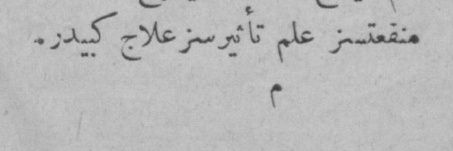 منفعتسز علم تأثیرسز علاج كبیدر.
م